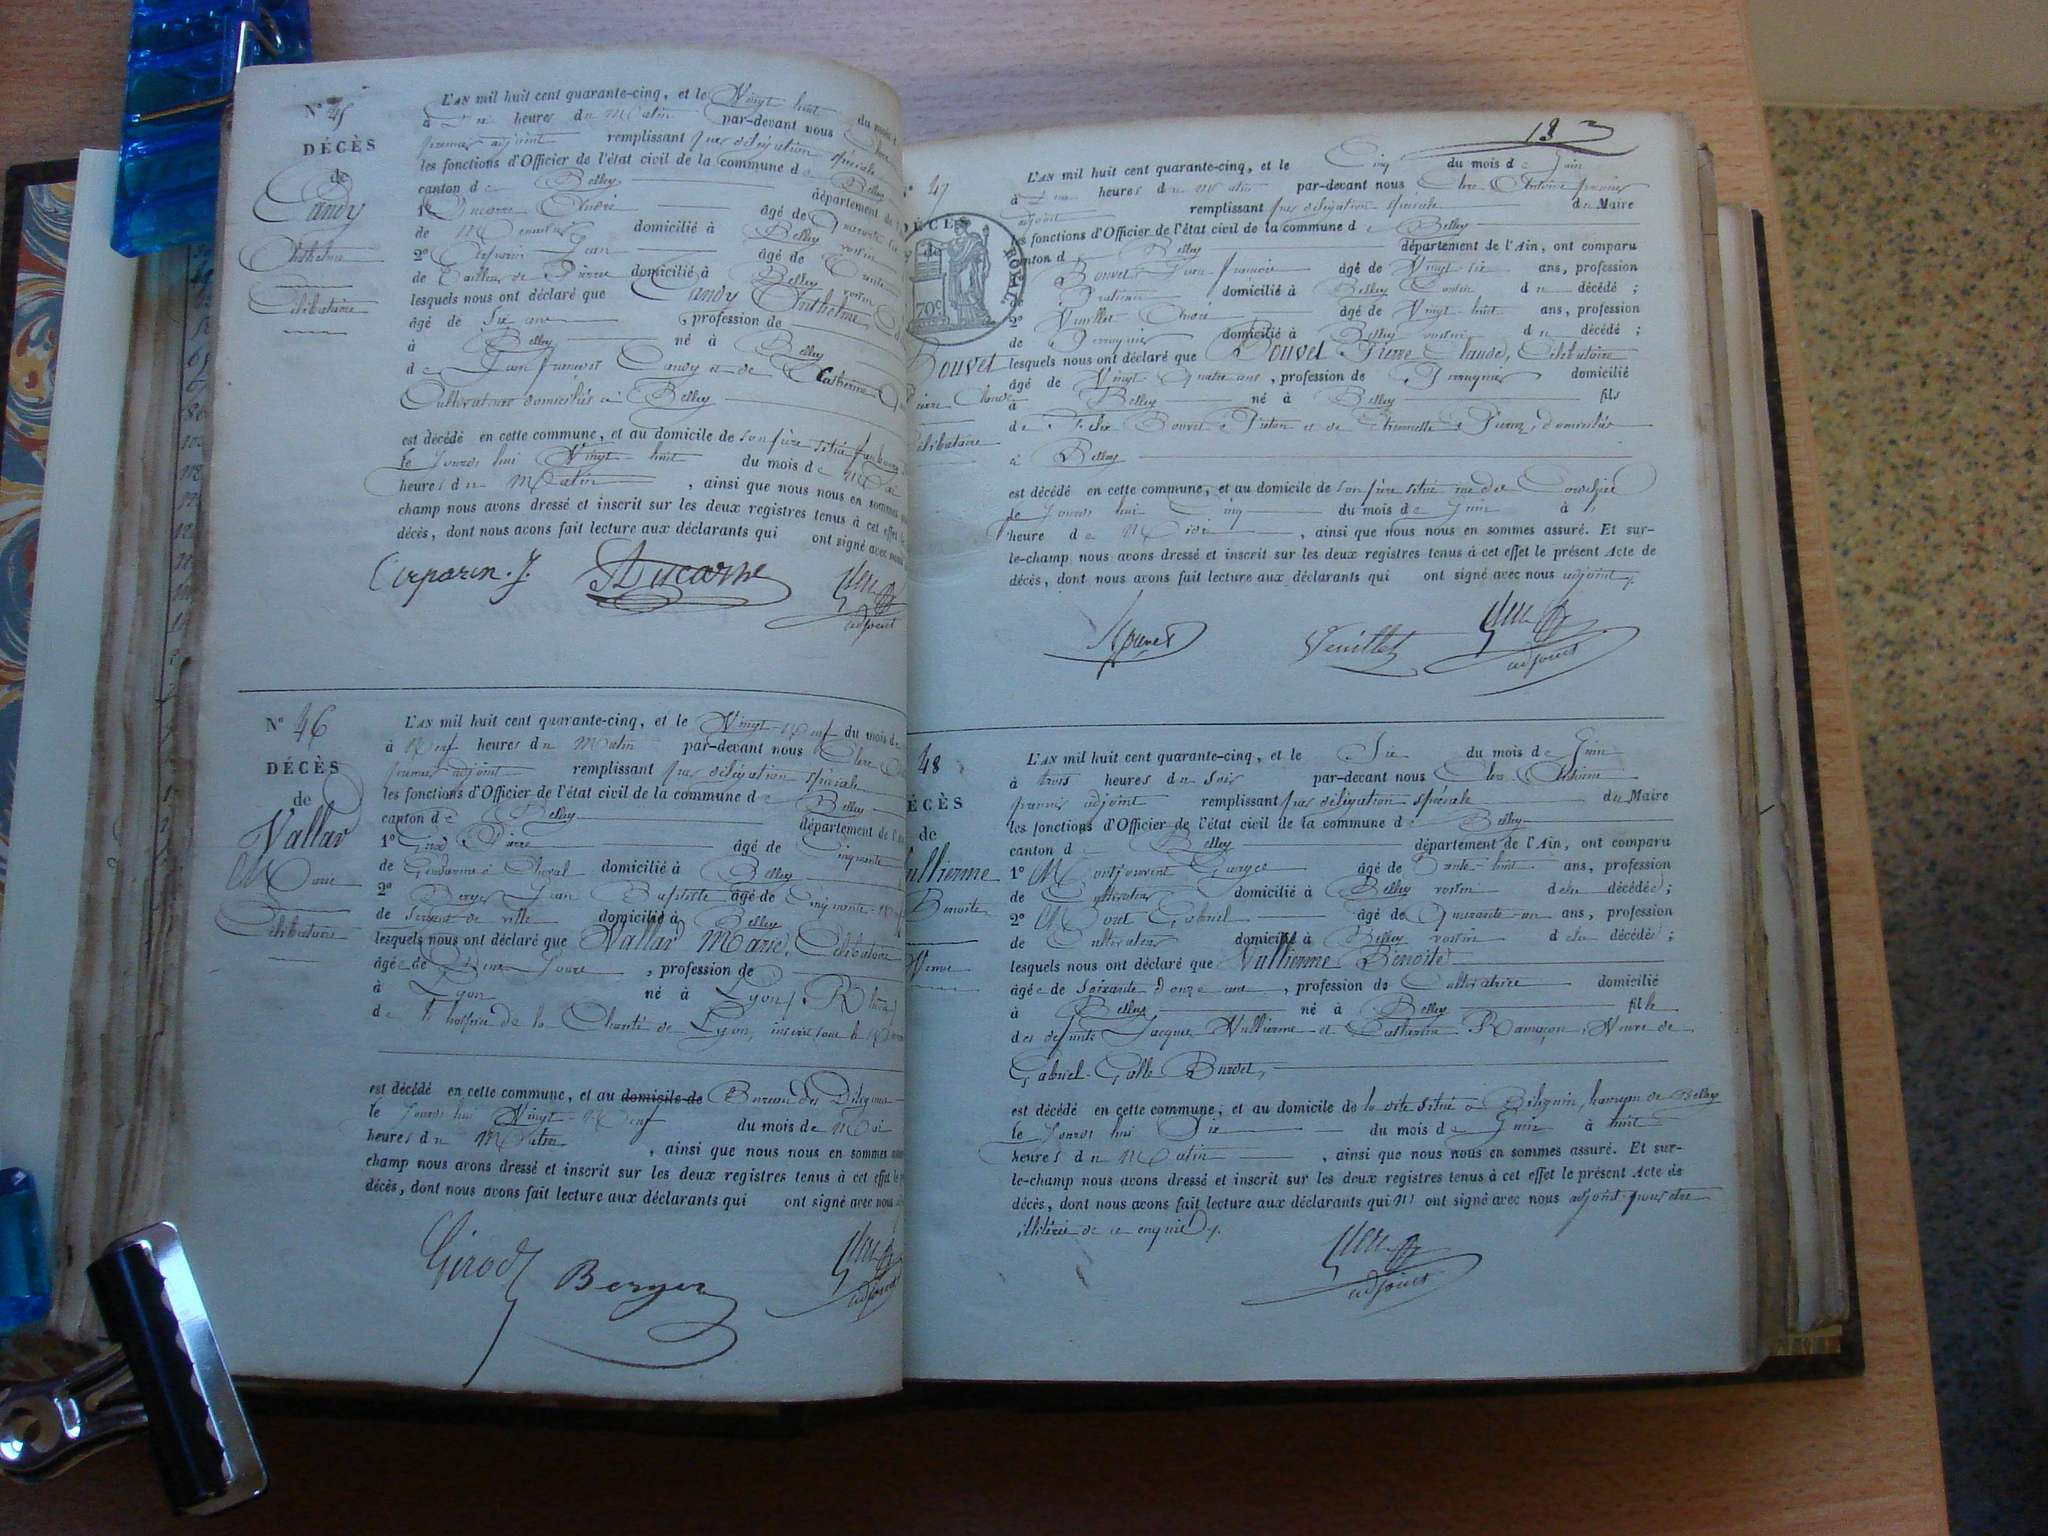 N° 45
DÉCÈS
de
Candy
Anthelme
Célibataire
L'AN mil huit cent quarante-cinq, et le Vingt huit du mois d
à heures du Matin par-devant nous
premier adjoint remplissant par délégation spéciale
les fonctions d'Officier de l'état civil de la commune de Belley
canton de Belley département de
1° Ducarre André âgé de Quarante
de domicilié à Belley voisin
2° Jean âgé de Trente
de Tailleur de Pierre domicilié à Belley voisin
lesquels nous ont déclaré que Candy Anthelme
âgé de Six ans, profession de
à Belley né à Belley
de Jean françois Candy et de Catherine
Cultivateurs domiciliés à Belley
est décédé en cette commune, et au domicile de son père situé faubourg
le Jourd'hui Vingt-huit du mois de Mai
heures du Matin, ainsi que nous nous en sommes
champ nous avons dressé et inscrit sur les deux registres tenus à cet effet le
décès, dont nous avons fait lecture aux déclarants qui ont signé avec nous
Ducarre
adjoint
N° 46
DÉCÈS
de
Vallar
Marie
Célibataire
L'AN mil huit cent quarante-cinq, et le Vingt-Neuf du mois de
à Neuf heures du Matin par-devant nous Clerc
premier adjoint remplissant par délégation spéciale
les fonctions d'Officier de l'état civil de la commune de Belley
canton de Belley département de l'
1° Girod Pierre âgé de Cinquante
de Gendarme à Cheval domicilié à Belley
2° Berger Jean Baptiste âgé de Cinquante-Neuf
de Sergent de ville domicilié à Belley
lesquels nous ont déclaré que Vallar Marie, Célibataire
âgée de Deux Jours, profession de
à Lyon né à Lyon (Rhône)
de l'hospice de la Charité de Lyon, inscrit sous le N
est décédé en cette commune, et au domicile de Bureau des Diligences
le Jourd'hui Vingt-Neuf du mois de Mai
heures du Matin, ainsi que nous nous en sommes
champ nous avons dressé et inscrit sur les deux registres tenus à cet effet le
décès, dont nous avons fait lecture aux déclarants qui ont signé avec nous
Girod Berger
adjoint
18
47
DÉCÈS
de
ROYAL
70c
Bouvet
Pierre Claude
Célibataire
L'AN mil huit cent quarante-cinq, et le Cinq du mois de Juin
à heures du Matin par-devant nous Clerc Antoine premier
adjoint remplissant par délégation spéciale du Maire
les fonctions d'Officier de l'état civil de la commune de Belley
canton d Belley département de l'Ain, ont comparu
Bouvet Jean françois âgé de Vingt-six ans, profession
de Praticien domicilié à Belley Cousin du décédé;
2° Vuillet André âgé de Vingt-huit ans, profession
de Perruquier domicilié à Belley voisin du décédé;
lesquels nous ont déclaré que Bouvet Pierre Claude, Célibataire
âgé de Vingt-Quatre ans, profession de Perruquier domicilié
à Belley né à Belley fils
de Felix Bouvet et de domiciliés
à Belley
est décédé en cette commune, et au domicile de son père situé rue
le Jourd'hui Cinq du mois de Juin à
heure de Midi, ainsi que nous nous en sommes assuré. Et sur-
le-champ nous avons dressé et inscrit sur les deux registres tenus à cet effet le présent Acte de
décès, dont nous avons fait lecture aux déclarants qui ont signé avec nous adjoint
Vuillet
adjoint
48
DÉCÈS
de
Vullierme
Benoite
Veuve
L'AN mil huit cent quarante-cinq, et le Six du mois de Juin
à trois heures du Soir par-devant nous Clerc Antoine
premier adjoint remplissant par délégation spéciale du Maire
les fonctions d'Officier de l'état civil de la commune de Belley
canton d Belley département de l'Ain, ont comparu
1° Montjouvent George âgé de Trente-huit ans, profession
de Cultivateur domicilié à Belley voisin de la décédée;
2° Moret Gabriel âgé de Quarante-un ans, profession
de Cultivateur domicilié à Belley voisin de la décédée;
lesquels nous ont déclaré que Vullierme Benoite
âgée de Soixante d'onze ans, profession de Cultivatrice domicilié
à Belley né à Belley fille
des défunts Jacques Vullierme et Catherine Ramaçon, Veuve de
Gabriel Galle Burdet,
est décédé en cette commune, et au domicile de la dite situé à Billignin, hameau de Belley
le Jourd'hui Six du mois de Juin à huit
heures du Matin, ainsi que nous nous en sommes assuré. Et sur-
le-champ nous avons dressé et inscrit sur les deux registres tenus à cet effet le présent Acte de
décès, dont nous avons fait lecture aux déclarants qui N' ont signé avec nous adjoint pour être
illitéré de ce enquis
adjoint